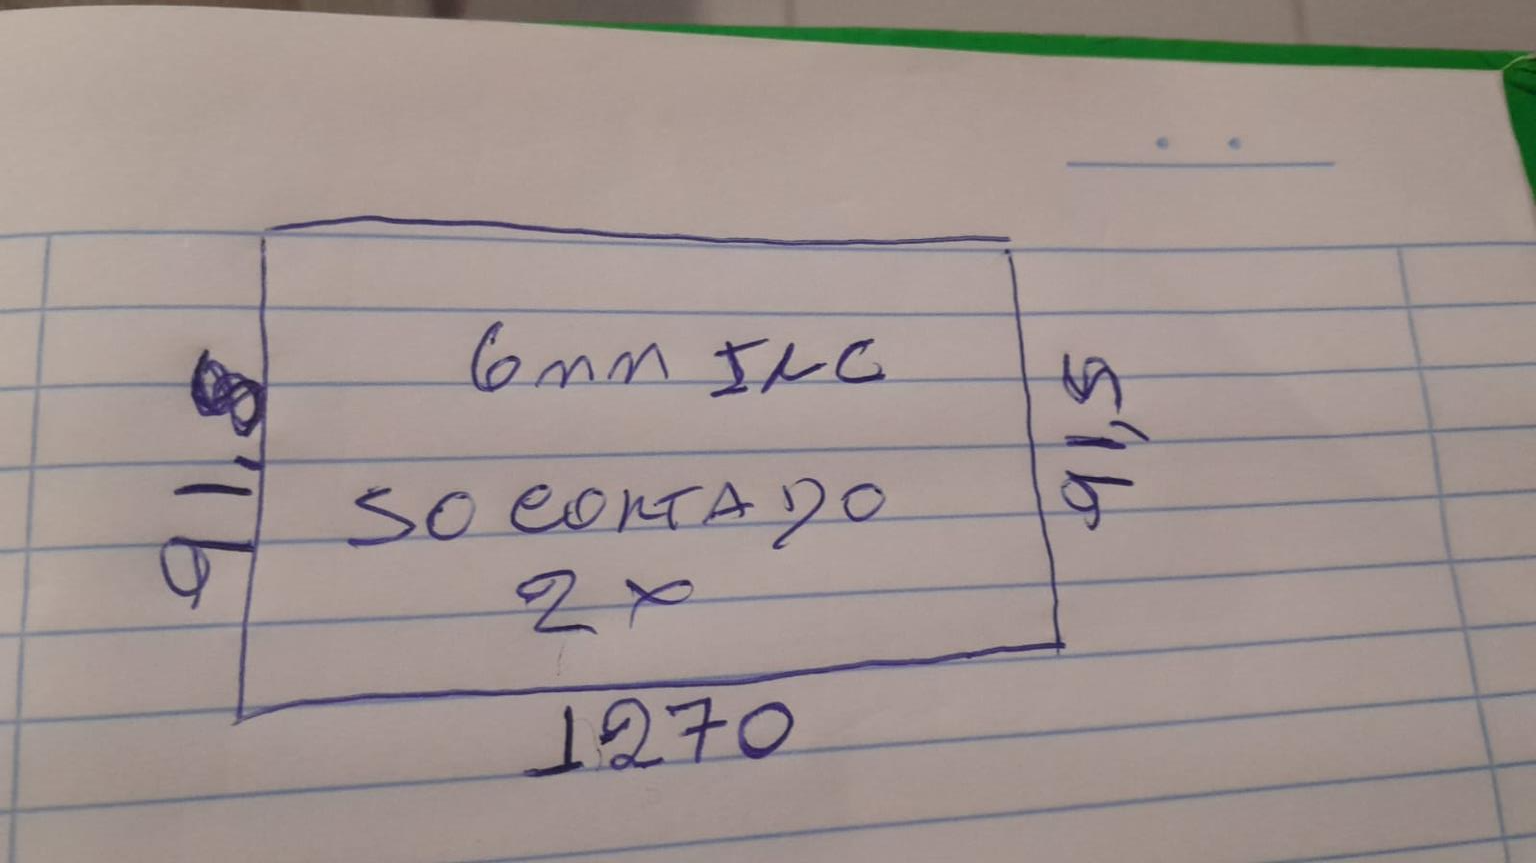 6mm INC
SO CORTADO
2x
91,8
91,5
1270